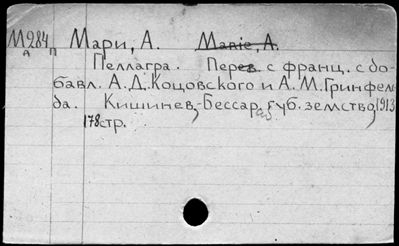 М284 Мари, А. Marie, A.
А п
Пеллагра. Перев. с франц. с до-
бавл. А.Д.Коцовского и А.М.Гринфель-
да. Кишинев, Бессар. губ. земство, 1913
178стр.